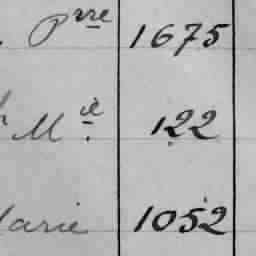 Prre 1675
Mie. 122
Marie 1052